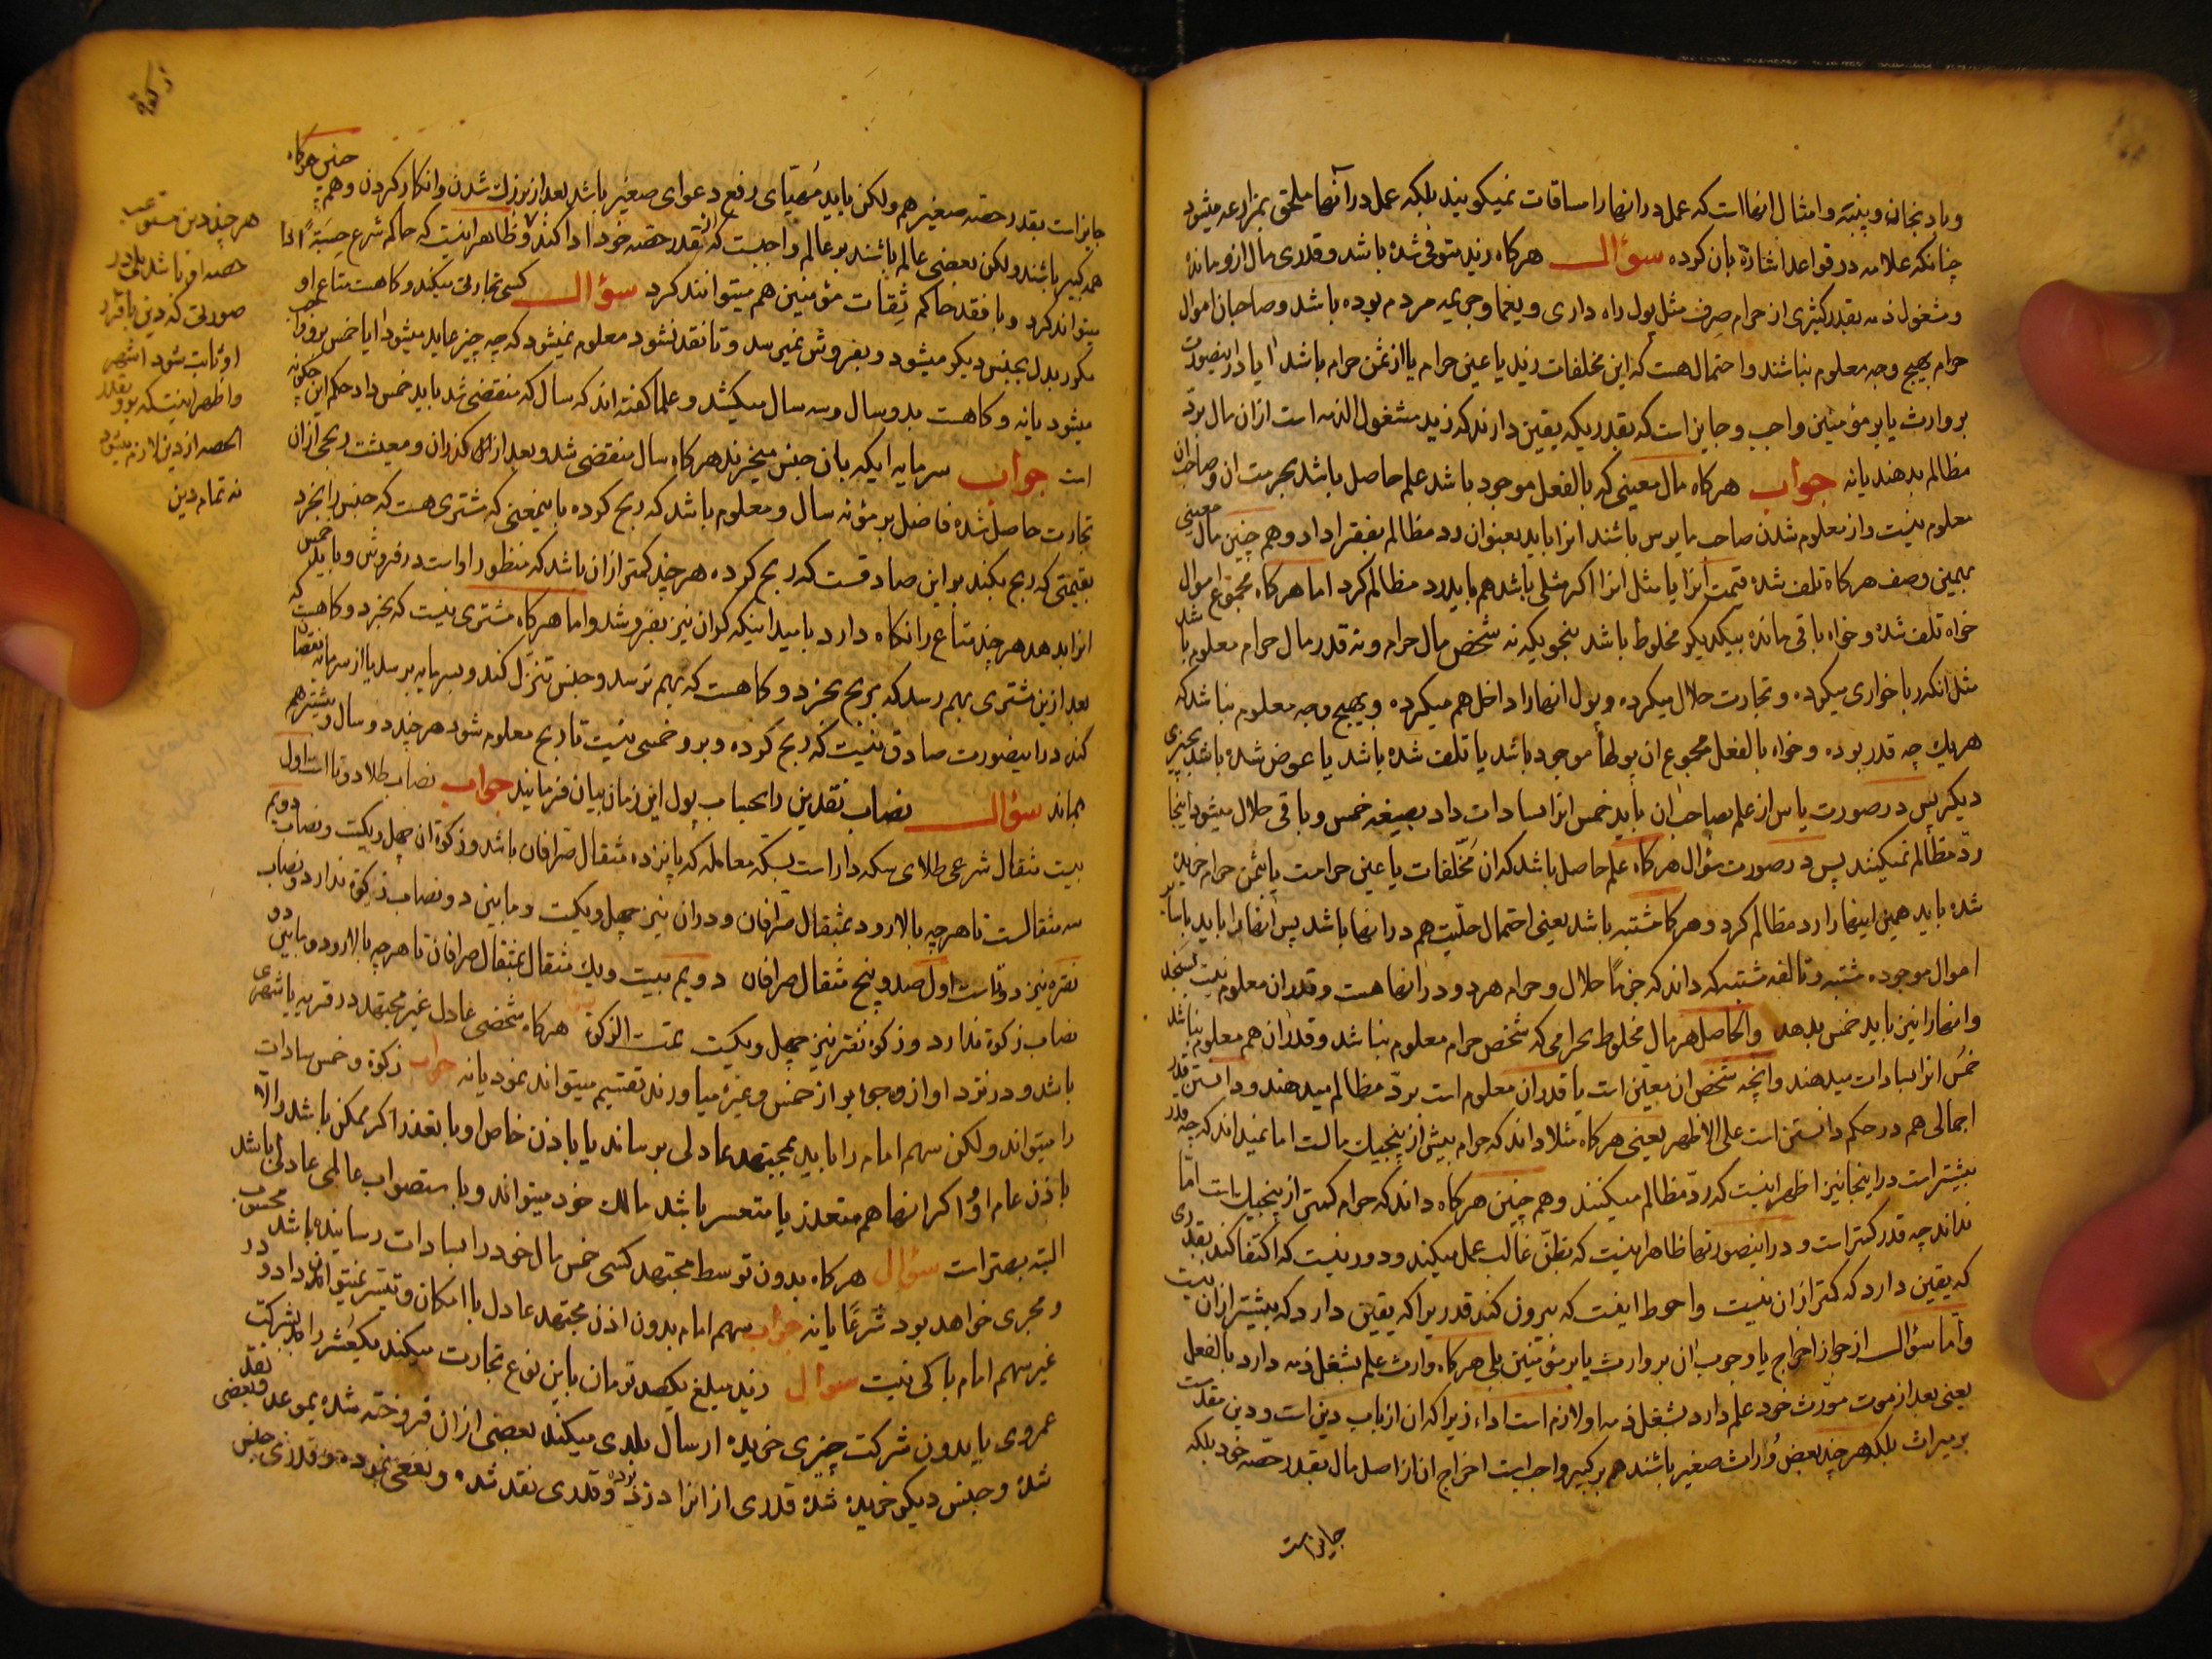 وبادنجان وپنبه وامثال اینها است که عمل در انها را مساقات نمیکویند بلکه عمل در آنها ملحق بمزارعه میشود
چنانکه علامه در قواعد اشارة بان کرده سؤال هرکاه زید متوفی شده باشد وقدری مال ازو مانده
ومشغول ذمه بقدر کثیری از حرام صرف مثل پول راه داری ویغما وجریمه مردم بوده باشد وصاحبان اموال
حرام بهیچ وجه معلوم نباشند واحتمال هست که این مخلفات زید یا عین حرام یا از ثمن حرام باشد ایا در اینصورت
بر وارث یا بر مؤمنین واجب وجایز است که بقدریکه یقین دارند که زید مشغول الذمه است از ان مال برد
مظالم بدهند یا نه جواب هرکاه مال معینی که بالفعل موجود باشد علم حاصل باشد بحرمت ان وصاحب ان
معلوم نیست واز معلوم شدن صاحب مایوس باشند انرا باید بعنوان رد مظالم بفقرا داد وهم چنین مال معینی
بهمین وصف هرکاه تلف شده قیمت انرا یا مثل انرا اکر مثلی باشد هم باید رد مظالم کرد اما هرکاه مجموع اموال
خواه تلف شده وخواه باقی مانده بیکدیکر مخلوط باشد بنحویکه نه شخص مال حرام ونه قدر مال حرام معلوم باشد
مثل انکه ربا خواری میکرده وتجارت حلال میکرده وپول انها را داخل هم میکرده وبهیچ وجه معلوم نباشد که
هریك چه قدر بوده وخواه بالفعل مجموع ان پولها موجود باشد یا تلف شده باشد یا عوض شده باشد بچیزی
دیکر پس در صورت یاس از علم بصاحب ان باید خمس انرا بسادات داد بصیغه خمس وباقی حلال میشود اینجا
ردّ مظالم نمیکنند پس در صورت سؤال هرکاه علم حاصل باشد که ان مخلفات یا عین حرامست یا بثمن حرام خریده
شده باید همین اینها را رد مظالم کرد وهرکا مشتبه باشد یعنی احتمال حلّیت هم در انها باشد پس انها را باید با سایر
اموال موجوده مشتبه وتالفه مشتبه که داند که جزمًا حلال وحرام هردو در انها هست وقدر ان معلوم نیست سنجند
وانها را نیز باید خمس بدهد والحاصل هر مال مخلوط بحرامی که شخص حرام معلوم نباشد وقدر ان هم معلوم نباشد
خمس انرا بسادات میدهند وانچه شخص ان معیّن است یا قدر ان معلوم است بردّ مظالم میدهند ودانستن قدر
اجمالی هم در حکم دانستن است علی الاظهر یعنی هرکاه مثلا داند که حرام بیش از پنجیك مالست اما نمیداند که چه قدر
بیشتر است در اینجا نیز اظهر اینست که ردّ مظالم میکنند وهم چنین هرکاه داند که حرام کمتر از پنجیك است امّا
نداند چه قدر کمتر است ودر اینصورتها ظاهر اینست که بظنّ غالب عمل میکند ودور نیست که اکتفا کند بقدری
که یقین دارد که کمتر از ان نیست واحوط اینست که بیرون کند قدریرا که یقین دارد که بیشتر از ان نیست
وامّا سؤال از جواز اخراج یا وجوب ان بر وارث یا بر مؤمنین بلی هرکاه وارث علم بشغل ذمه دارد بالفعل
یعنی بعد از موت مورّث خود علم دارد بشغل ذمه او لازم است اداء زیرا که ان از باب دین است ودین مقدمست
بر میراث بلکه هرچند بعض وُرّاث صغیر باشند هم بر کبیر واجب است اخراج ان از اصل مال بقدر حصّه خود بلکه
جایز است
زکوة
جایز است بقدر حصّه صغیر هم ولکن باید مُهیّای رفع دعوای صغیر باشد بعد از بزرك شدن وانکار کردن وهم چنین هرکاه
همه کبیر باشند ولکن بعضی عالم باشند بر عالم واجبست که بقدر حصّه خود ادا کند وظاهر اینست که حاکم شرع حِسبَةً ادا
میتواند کرد وبا فقد حاکم ثِقات مؤمنین هم میتوانند کرد سؤال کسی تجارتی میکند وکاهست متاع او
مکرر بدل بجنس دیکر میشود وبفروش نمیرسد وتا نقد نشود معلوم نمیشود که چه چیز عاید میشود ایا خمس بر او واجب
میشود یا نه وکاهست بدو سال وسه سال میکشد وعلما کفته اند که سال که منقضی شد باید خمس داد حکم این چکونه
است جواب سرمایه ایکه بان جنس میخرند هرکاه سال منقضی شد وبعد از کذران ومعیشت ربحی از ان
تجارت حاصل شده فاضل بر مؤنه سال ومعلوم باشد که ربح کرده باینمعنی که مشتری هست که جنس را بخرد
بقیمتی که ربح بکند بر این صادقست که ربح کرده هرچند کمتر از ان باشد که منظور او است در فروش وباید خمس
انرا بدهد هرچند متاع را نکاه دارد بامید اینکه کران نیز بفروشد واما هرکاه مشتری نیست که بخرد وکاهست که
بعد ازین مشتری بهم رسد که بربح بخرد وکاهست که بهم نرسد وجنس تنزّل کند وبسرمایه برسد یا از سرمایه نقصان
کند در اینصورت صادق نیست که ربح کرده وبر او خمسی نیست تا ربح معلوم شود هرچند دو سال وبیشتر هم
بماند سؤال نصاب نقدین را بحساب پول این زمان بیان فرمایند جواب نصاب طلا دو تا است اول
بیست مثقال شرعی طلای سکه دار است بسکّه معامله که پانزده مثقال صرافان باشد وزکوة ان چهل ویکست ونصاب دویم
سه مثقالست تا هرچه بالا رود بمثقال صرافان ودر ان نیز چهل ویکست ومابین دو نصاب زکوة ندارد ونصاب
نقره نیز دوتاست اول صد وپنج مثقال صرافان دویم بیست ویك مثقال بمثقال صرافان تا هرچه بالا رود ومابین دو
نصاب زکوة ندارد وزکوة نقره نیز چهل ویکست تمت الزکوة هرکاه شخصی عادل غیر مجتهد در قریه یا شهری
باشد ودر نزد او از وجوه بر از خمس وغیره میاورند تقسیم میتواند نمود یا نه جواب زکوة وخمس سادات
را میتواند ولکن سهم امام را باید بمجتهد عادلی برساند یا باذن خاص او با تعذر اکر ممکن باشد والّا
باذن عام او واکر انها هم متعذر یا متعسر باشد مالك خود میتواند وباستصواب عالمی عادلی باشد
البته بهتر است سؤال هرکاه بدون توسط مجتهد کسی خمس مال خود را بسادات رسانیده باشد محسوب
ومجری خواهد بود شرعًا یا نه جواب سهم امام بدون اذن مجتهد عادل با امکان وتیسر نمیتواند داد ودر
غیر سهم امام باکی نیست سؤال زید مبلغ یکصد تومان باین نوع تجارت میکند یکعُشر را بشرکت
عمروی یا بدون شرکت چیزی خریده ارسال بلدی میکند بعضی از ان فروخته شده بموعد وبعضی نقد
شده وجنس دیکر خریده شده قدری از انرا دزد برده وقدری نقد شده ونفعی نموده وقدری جنس
هرچند دین مستوعب
حصه او باشد بلی در
صورتی که دین باقرار
او ثابت شود اشهر
واظهر اینست که بقدر
الحصه از دین لازم میشود
نه تمام دین